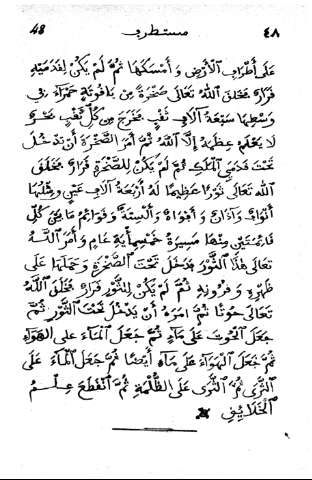 ٤٨ مستطرف 48
على أطراف الأرض و أمسكها ثم لم يكن لقدميه
قرار فخلق الله تعالى صخرة من ياقوتة حمراء في
وسطها سبعة آلاف ثقب فخرج من كل ثقب بحر
لا يعلم عظمه إلا الله ثم أمر الصخرة أن تدخل
تحت قدمي الملك ثم لم يكن للصخرة قرار فخلق
الله تعالى ثورا عظيما له أربعة آلاف عين ومثلها
أنوف وآذان و أفواه و ألسنة و قوائم ما بين كل
قائمتين منها مسيرة خمسمأية عام و أمر الله
تعالى هذا الثور فدخل تحت الصخرة و حملها على
ظهره و قرونه ثم لم يكن للثور قرار فخلق الله
تعالى حوتا ثم امره أن يدخل تحت الثور ثم
جعل الحوت على ماء ثم جعل الماء على الهواء
ثم جعل الهواء على ماء أيضا ثم جعل الماء على
الثرى ثم الثرى على الظلمة ثم انقطع علم
الخلايف